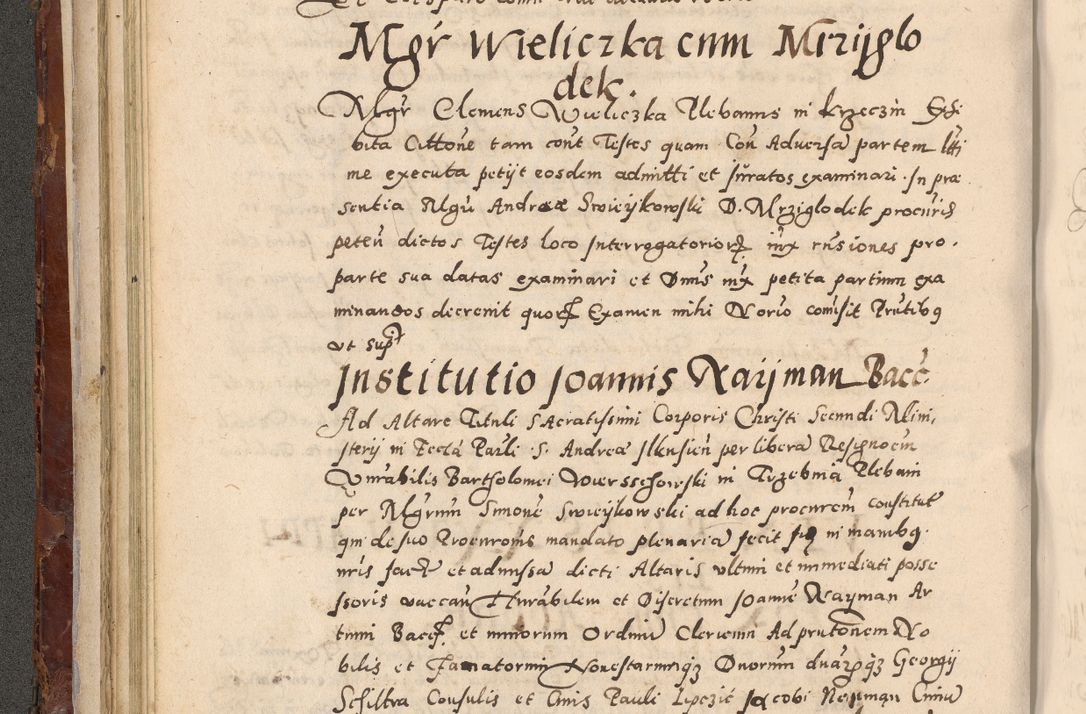 Mgr Wieliczka cum Mrzyglo
dek.
Mgr Clemens Wieliczka Plebanus in Krzeczin Exhi
bita Cittone tam cont Testes quam Con Adversa partem
me executa petijt eosdem admitti et juratos examinari. In præ
sentia Mgri Andreæ Swieijkowski D. Mrziglodek procuris
peten dictos Testes loco Interrogatorior pro.
parte sua datas examinari et Dnus petita partium exa
minandos decrevit quor Examen mihi Norio comisit Pntibq
ut supra
Institutio Joannis Nayman Bacc.
Ad Altare Tituli SAcratissimi Corporis Christi Secundi Minis
terij in Eccla Parli S. Andreæ Ilkusien per libera Resignoem
Vnrabilis Bartholomei in Trzebnia Plebani
per Mgrum Simone Swieijkowski ad hoc procurem constitut
qm de suo Procuroris mandato plenaria fecit in manibq
nris fact et admissa dicti Altaris ultimi et immediati posse
ssoris vaccan Hnrabilem et Discretum Joanne Nayman Ar
tium Bacc et minorum Ordinu Clericum Ad pntonem No
bilis et Famatorum Dnorum Georgij
Schiltra Consulis et Civis Pauli Lipczic Jacobi Neyman Civiu